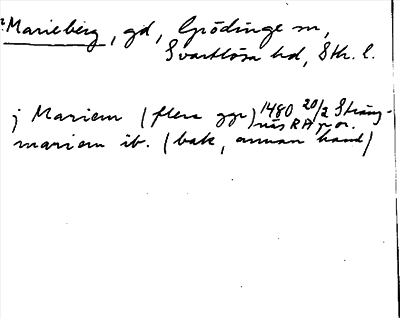 Marieberg, gd, Grödinge sn,
Svartlösa hd, Sth. l.
j Mariem (flera ggr) 1480 20/2 Sträng-
näs RA p or.
mariem ib. (bak, annan hand)